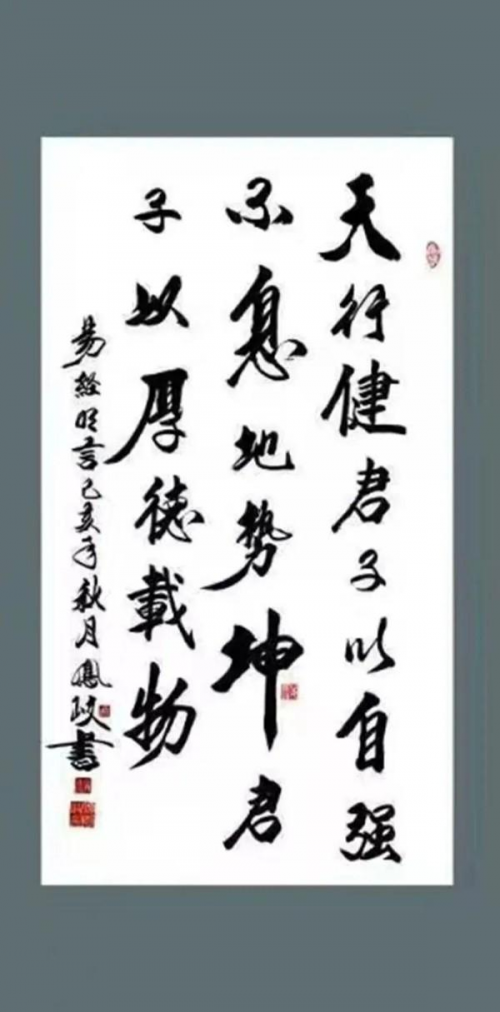 天行健君子以自强
不息地势坤君
子以厚德載物
易经名言己亥年秋月鳳政書